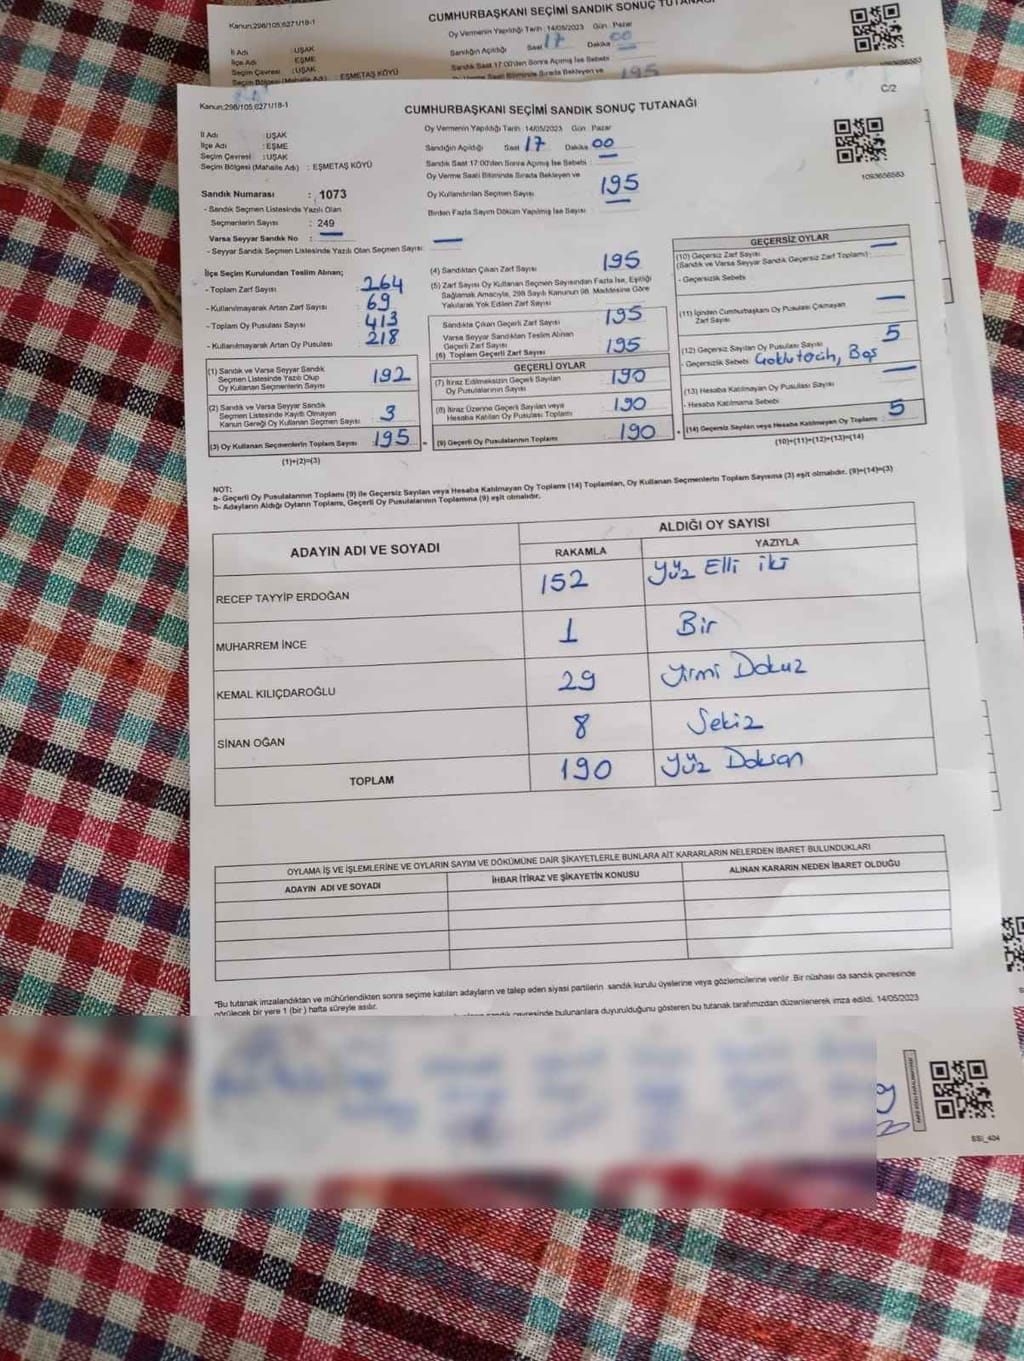 Kanun;298/105,6271/18-1
CUMHURBAŞKANI SEÇİMİ SANDIK SONUÇ TUTANAĞI
Oy Vermenin Yapıldığı Tarih :14/05/2023 Gün : Pazar
İl Adı : UŞAK
İlçe Adı : EŞME
Seçim Çevresi : UŞAK
EŞMETAŞ KÖYÜ
Sandığın Açıldığı Saat 17 Dakika 00
Sandık Saat 17:00'den Sonra Açılmış İse Sebebi
195
1093656563
Kanun;298/105,6271/18-1
CUMHURBAŞKANI SEÇİMİ SANDIK SONUÇ TUTANAĞI
C/2
İl Adı : UŞAK
İlçe Adı : EŞME
Seçim Çevresi : UŞAK
Seçim Bölgesi (Mahalle Adı) : EŞMETAŞ KÖYÜ
Oy Vermenin Yapıldığı Tarih :14/05/2023 Gün : Pazar
Sandığın Açıldığı Saat 17 Dakika 00
Sandık Saat 17:00'den Sonra Açılmış İse Sebebi :
Oy Verme Saati Bitiminde Sırada Bekleyen ve
Oy Kullandırılan Seçmen Sayısı 195
Birden Fazla Sayım Döküm Yapılmış İse Sayısı :
1093656563
Sandık Numarası : 1073
- Sandık Seçmen Listesinde Yazılı Olan
Seçmenlerin Sayısı : 249
Varsa Seyyar Sandık No : —
- Seyyar Sandık Seçmen Listesinde Yazılı Olan Seçmen Sayısı: —
İlçe Seçim Kurulundan Teslim Alınan;
- Toplam Zarf Sayısı : 264
- Kullanılmayarak Artan Zarf Sayısı : 69
- Toplam Oy Pusulası Sayısı : 413
- Kullanılmayarak Artan Oy Pusulası : 218
(1) Sandık ve Varsa Seyyar Sandık
Seçmen Listesinde Yazılı Olup
Oy Kullanan Seçmenlerin Sayısı : 192
(2) Sandık ve Varsa Seyyar Sandık
Seçmen Listesinde Kayıtlı Olmayan
Kanun Gereği Oy Kullanan Seçmen Sayısı : 3
(3) Oy Kullanan Seçmenlerin Toplam Sayısı : 195
(1)+(2)=(3)
(4) Sandıktan Çıkan Zarf Sayısı : 195
(5) Zarf Sayısı Oy Kullanan Seçmen Sayısından Fazla İse, Eşitliği
Sağlamak Amacıyla, 298 Sayılı Kanunun 98. Maddesine Göre
Yakılarak Yok Edilen Zarf Sayısı :
Sandıkta Çıkan Geçerli Zarf Sayısı : 195
Varsa Seyyar Sandıktan Teslim Alınan
Geçerli Zarf Sayısı
(6) Toplam Geçerli Zarf Sayısı : 195
GEÇERLİ OYLAR
(7) İtiraz Edilmeksizin Geçerli Sayılan
Oy Pusulalarının Sayısı : 190
(8) İtiraz Üzerine Geçerli Sayılan veya
Hesaba Katılan Oy Pusulası Toplamı : 190
= (9) Geçerli Oy Pusulalarının Toplamı : 190
GEÇERSİZ OYLAR
(10) Geçersiz Zarf Sayısı —
(Sandık ve Varsa Seyyar Sandık Geçersiz Zarf Toplamı) :
- Geçersizlik Sebebi :
(11) İçinden Cumhurbaşkanı Oy Pusulası Çıkmayan
Zarf Sayısı —
(12) Geçersiz Sayılan Oy Pusulası Sayısı : 5
- Geçersizlik Sebebi
(13) Hesaba Katılmayan Oy Pusulası Sayısı : —
- Hesaba Katılmama Sebebi
+ (14) Geçersiz Sayılan veya Hesaba Katılmayan Oy Toplamı : 5
(10)+(11)+(12)+(13)=(14)
NOT:
a- Geçerli Oy Pusulalarının Toplamı (9) ile Geçersiz Sayılan veya Hesaba Katılmayan Oy Toplamı (14) Toplamları, Oy Kullanan Seçmenlerin Toplam Sayısına (3) eşit olmalıdır. (9)+(14)=(3)
b- Adayların Aldığı Oyların Toplamı, Geçerli Oy Pusulalarının Toplamına (9) eşit olmalıdır.
ADAYIN ADI VE SOYADI
ALDIĞI OY SAYISI
RAKAMLA YAZIYLA
RECEP TAYYİP ERDOĞAN 152 Yüz Elli iki
MUHARREM İNCE 1 Bir
KEMAL KILIÇDAROĞLU 29 Yirmi Dokuz
SİNAN OĞAN 8 Sekiz
TOPLAM 190 Yüz Doksan
OYLAMA İŞ VE İŞLEMLERİNE VE OYLARIN SAYIM VE DÖKÜMÜNE DAİR ŞİKAYETLERLE BUNLARA AİT KARARLARIN NELERDEN İBARET BULUNDUKLARI
ADAYIN ADI VE SOYADI İHBAR İTİRAZ VE ŞİKAYETİN KONUSU ALINAN KARARIN NEDEN İBARET OLDUĞU
*Bu tutanak imzalandıktan ve mühürlendikten sonra seçime katılan adayların ve talep eden siyasi partilerin sandık kurulu üyelerine veya gözlemcilerine verilir .Bir nüshası da sandık çevresinde
görülecek bir yere 1 (bir ) hafta süreyle asılır.
çevresinde bulunanlara duyurulduğunu gösteren bu tutanak tarafımızdan düzenlenerek imza edildi. 14/05/2023
SSİ_404